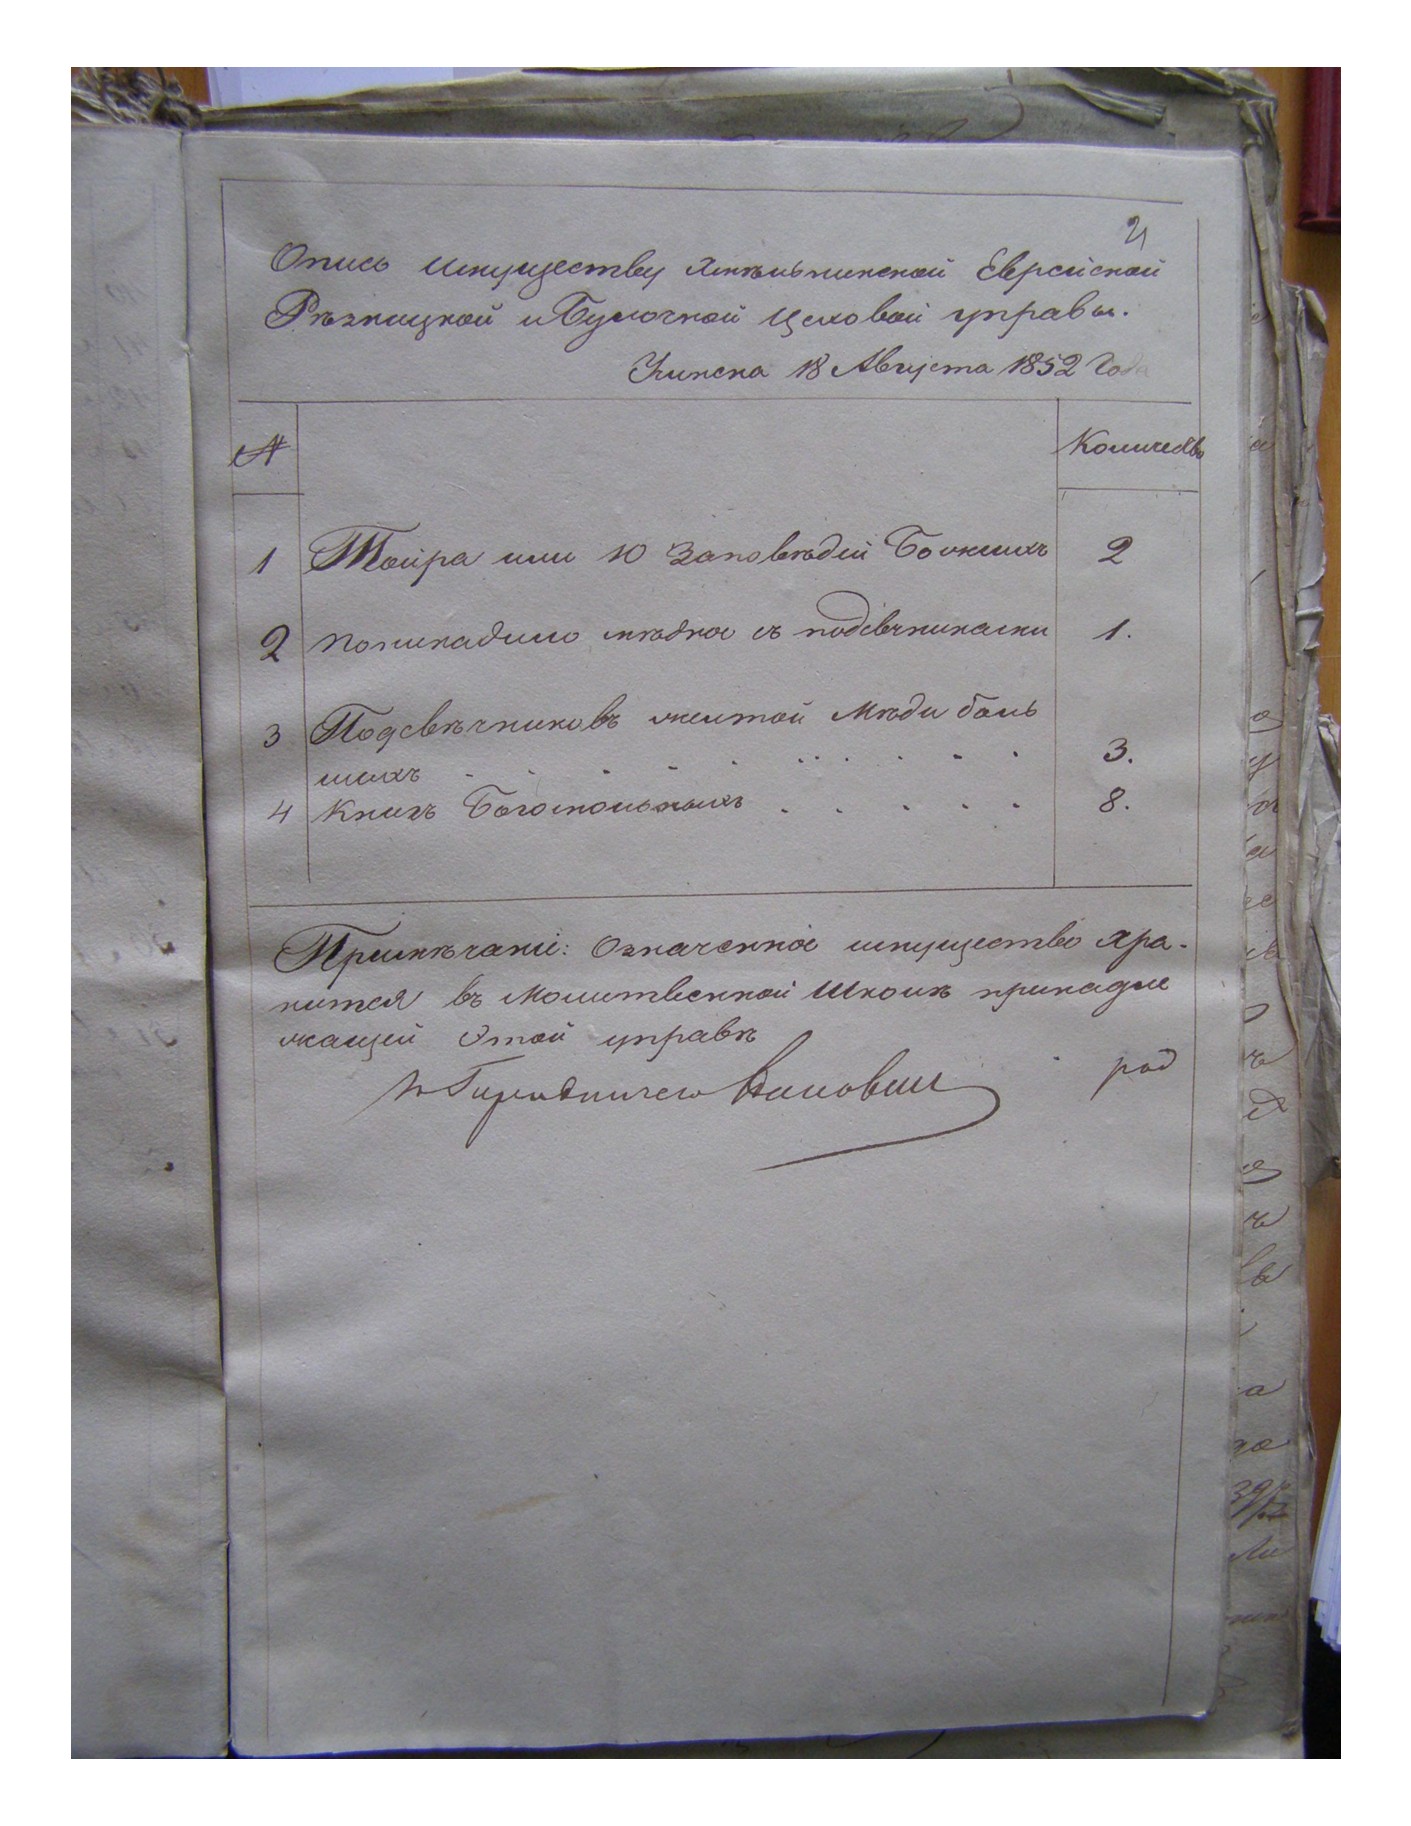 21
Опись имуществу Хмѣльникской Еврейской
Рѣзницкой и Булочной Цеховой управы.
Учинена 18 Августа 1852 Года
№
Количество
1 Тоира или 10 Заповѣдій Божіихъ 2
2 Поникадило мѣдное съ подсвѣчниками 1.
3 Подсвѣчниковъ желтой мѣди боль
шихъ . . . . . . . . . . . 3.
4 Книгъ Богомольныхъ . . . . . 8.
Примѣчаніе: Означенное имущество хра-
нится въ Молитвенной Школѣ принадле
жащей этой управѣ
Городничего